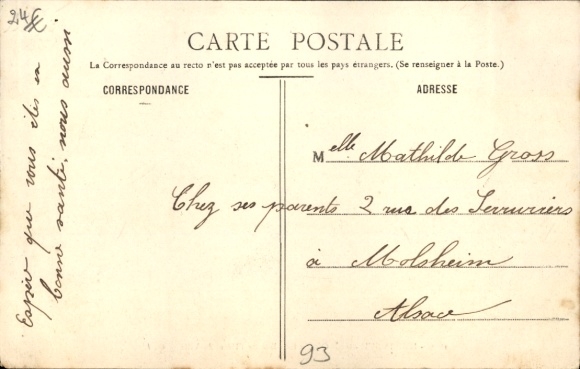 24
CARTE POSTALE
La Correspondance au recto n'est pas acceptée par tous les pays étrangers. (Se renseigner à la Poste.)
CORRESPONDANCE
ADRESSE
Espère que vous êtes en
bonne santé, nous aussi
Melle Mathilde Gross
Chez ses parents 2 rue des Serruriers
à Molsheim
Alsace
93